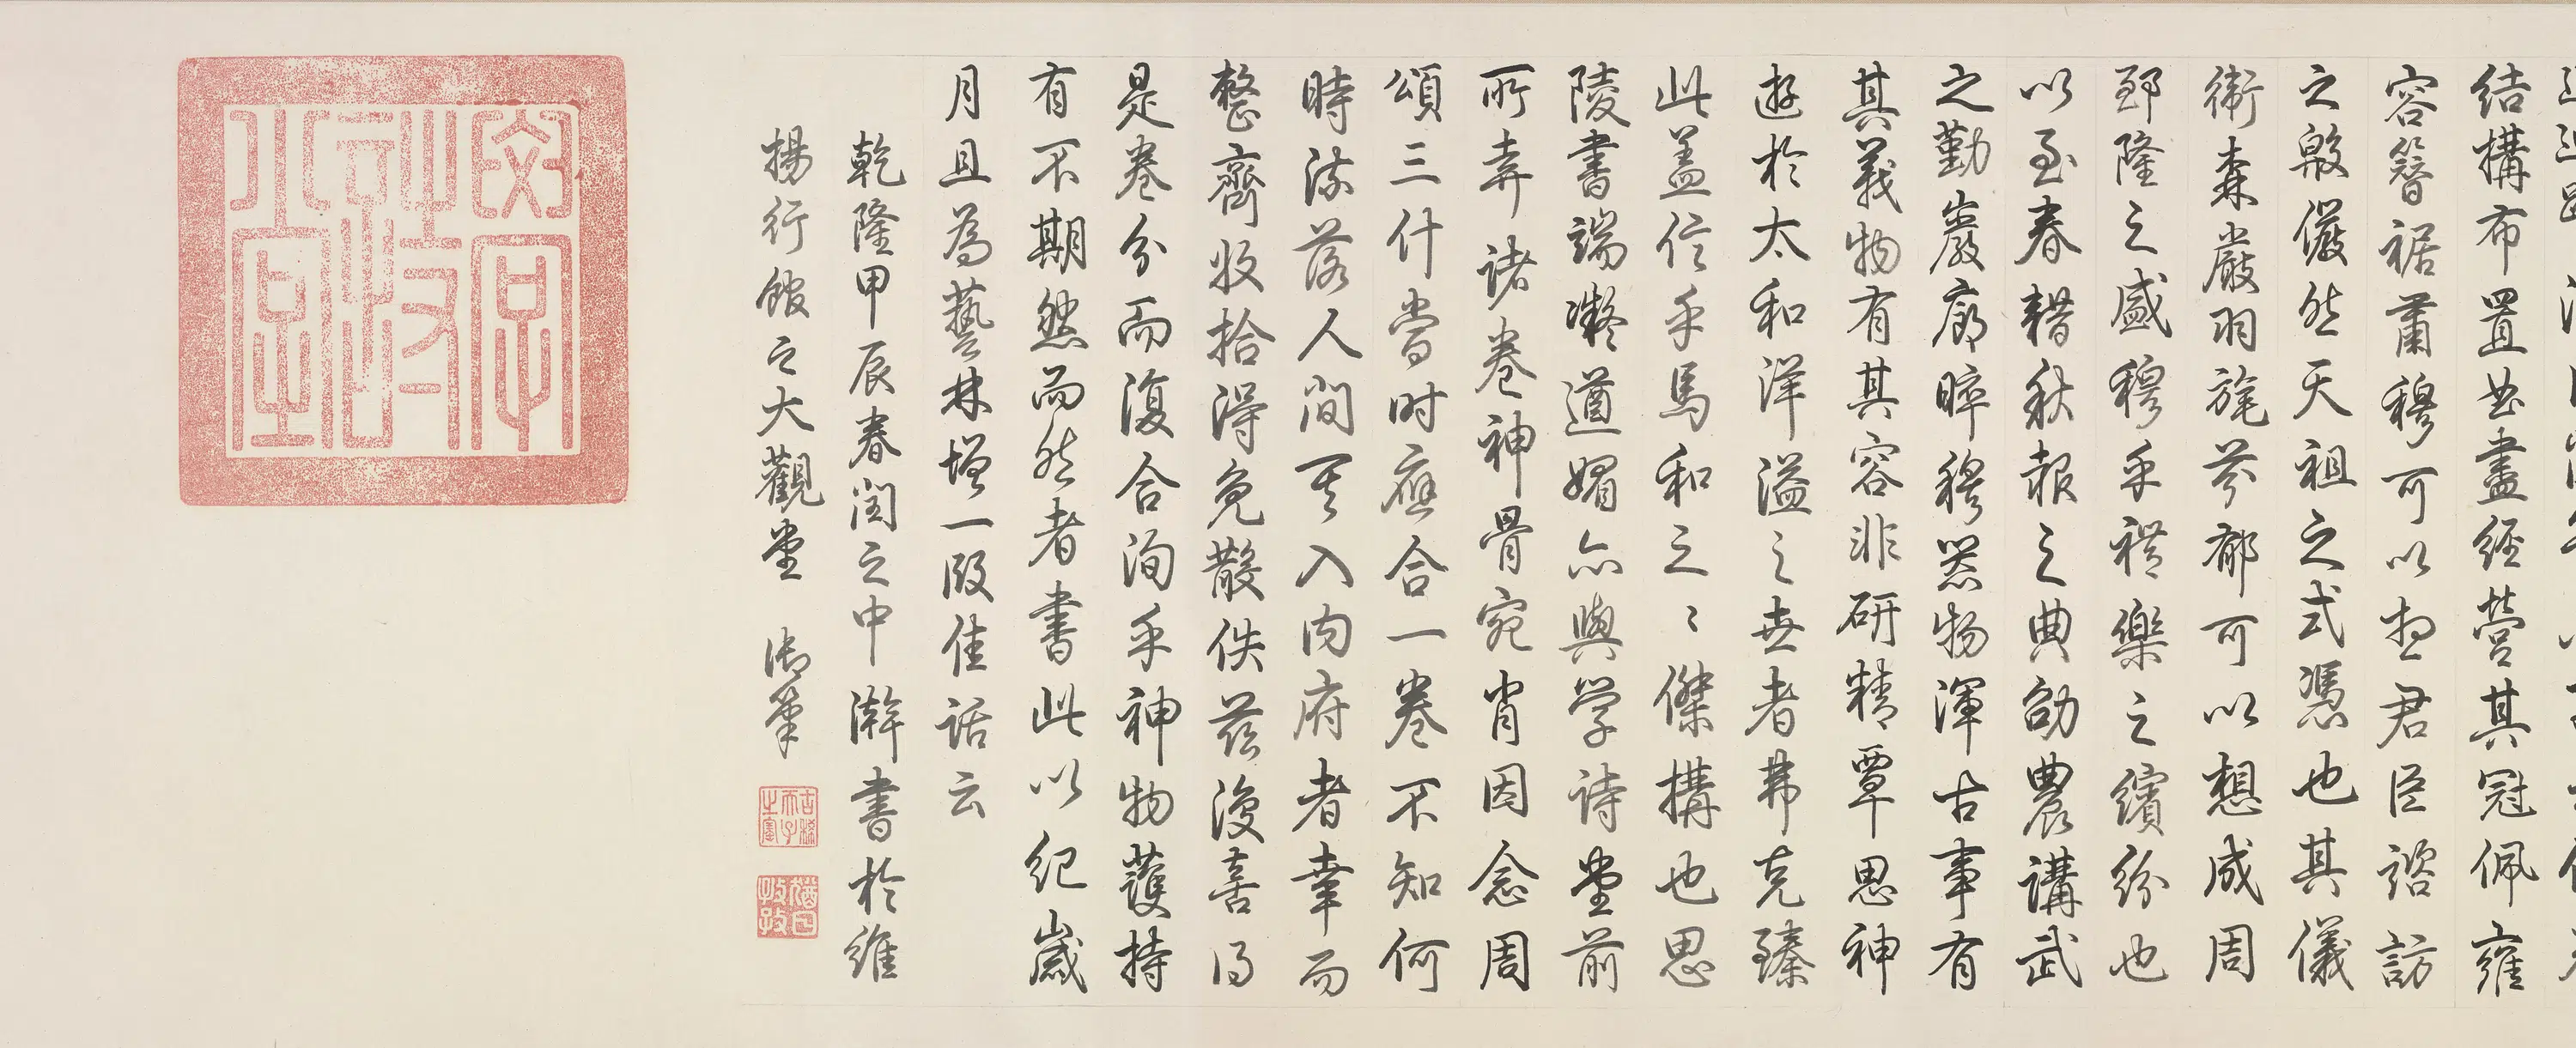 結構布置曲盡經營其冠佩雍
容簪裾肅穆可以想君臣諮訪
之殷儼然天祖之式憑也其儀
衛森嚴羽旄芬郁可以想成周
郅隆之盛穆乎禮樂之繽紛也
以至春耤秋報之典劭農講武
之勤巖廊晬穆器物渾古事有
其義物有其容非研精覃思神
遊於太和洋溢之世者弗克臻
此蓋信乎馬和之之傑構也思
陵書端凝遒媚亦與學詩堂前
所弆諸卷神骨宛肖因念周
頌三什當時應合一卷不知何
時流落人間其入內府者幸而
整齊收拾得免散佚茲復喜得
是卷分而復合洵乎神物護持
有不期然而然者書此以紀歲
月且為藝林增一段佳話云
乾隆甲辰春閏之中澣書於維
揚行館之大觀堂 御筆
古稀天子之寶
猶日孜孜